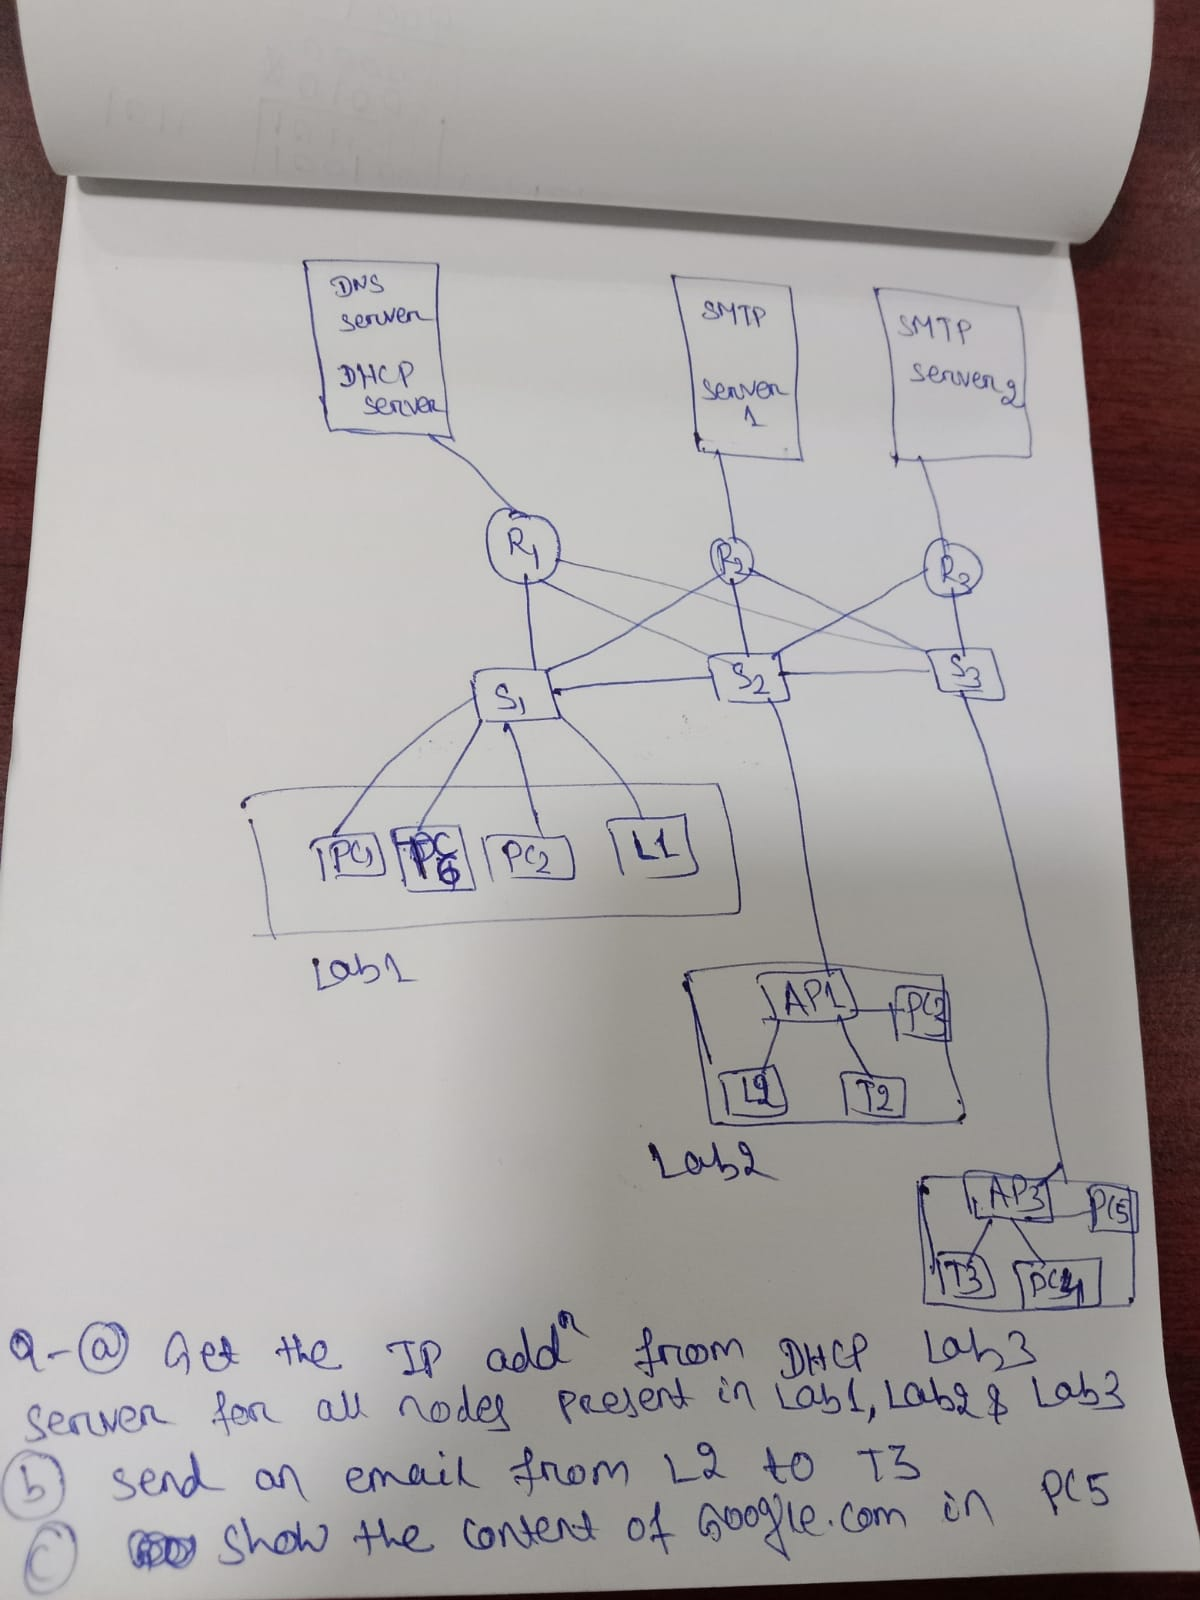 DNS
server
DHCP
server
SMTP
server
1
SMTP
server2
R1
R2
R3
S1
S2
S3
PC1
PC6
PC2
L1
Lab1
AP1
L2
T2
Lab2
AP3
PC5
T3
PC4
Lab3
Q-(a) Get the IP addr from DHCP
server for all nodes present in Lab1, Lab2 & Lab3
(b) send an email from L2 to T3
(c) show the content of Google.com in PC5